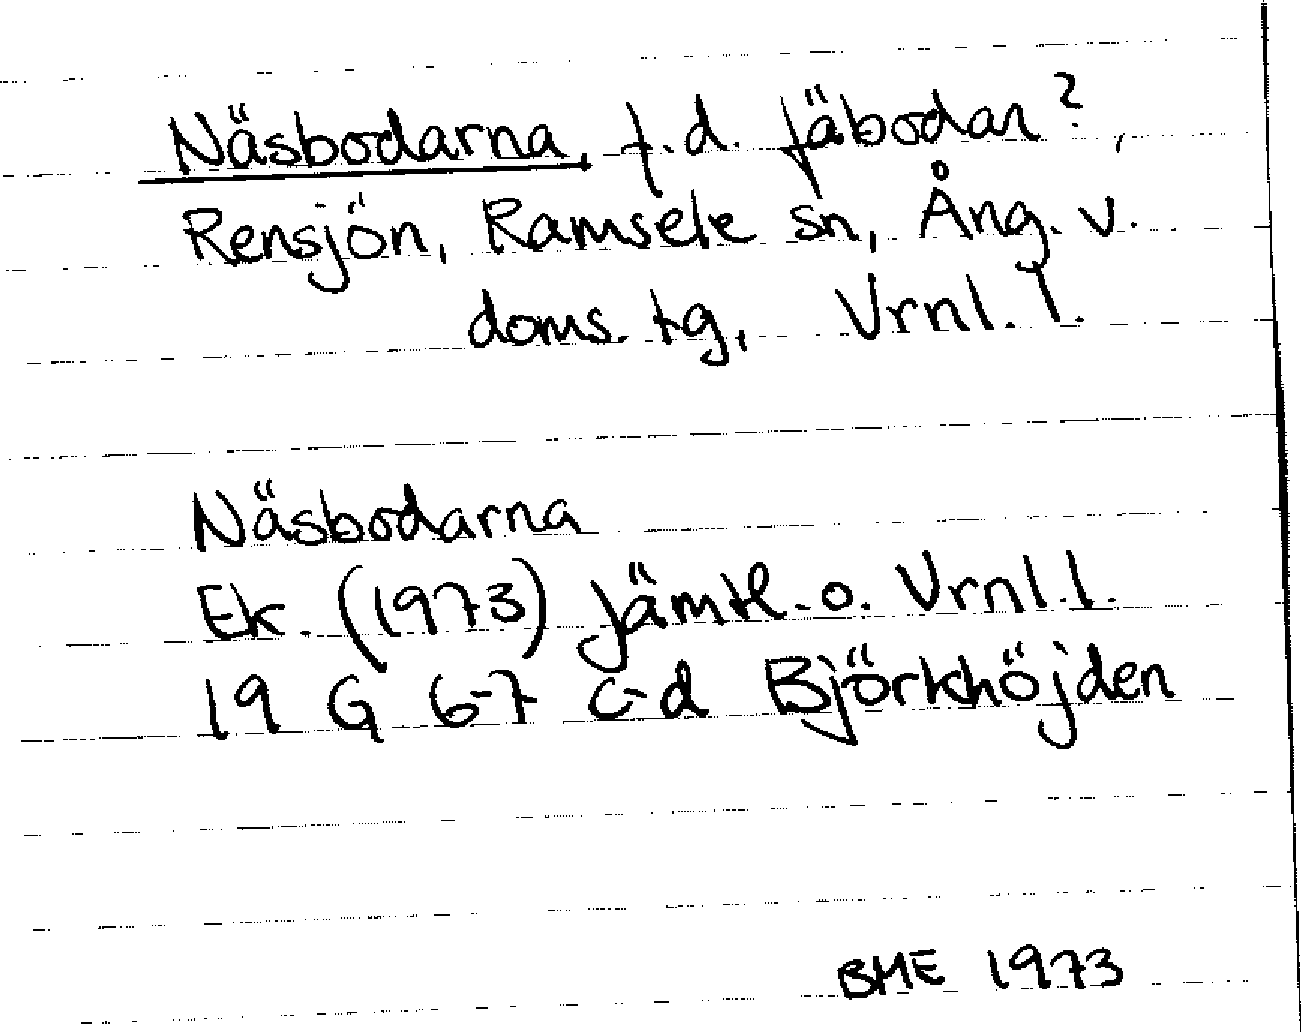 Näsbodarna, f.d. fäbodar?,
Rensjön, Ramsele sn, Ång. v.
doms. tg, Vrnl. l.
Näsbodarna
Ek. (1973) Jämtl. o. Vrnl. l.
19 G 6-7 c-d Björkhöjden
BME 1973